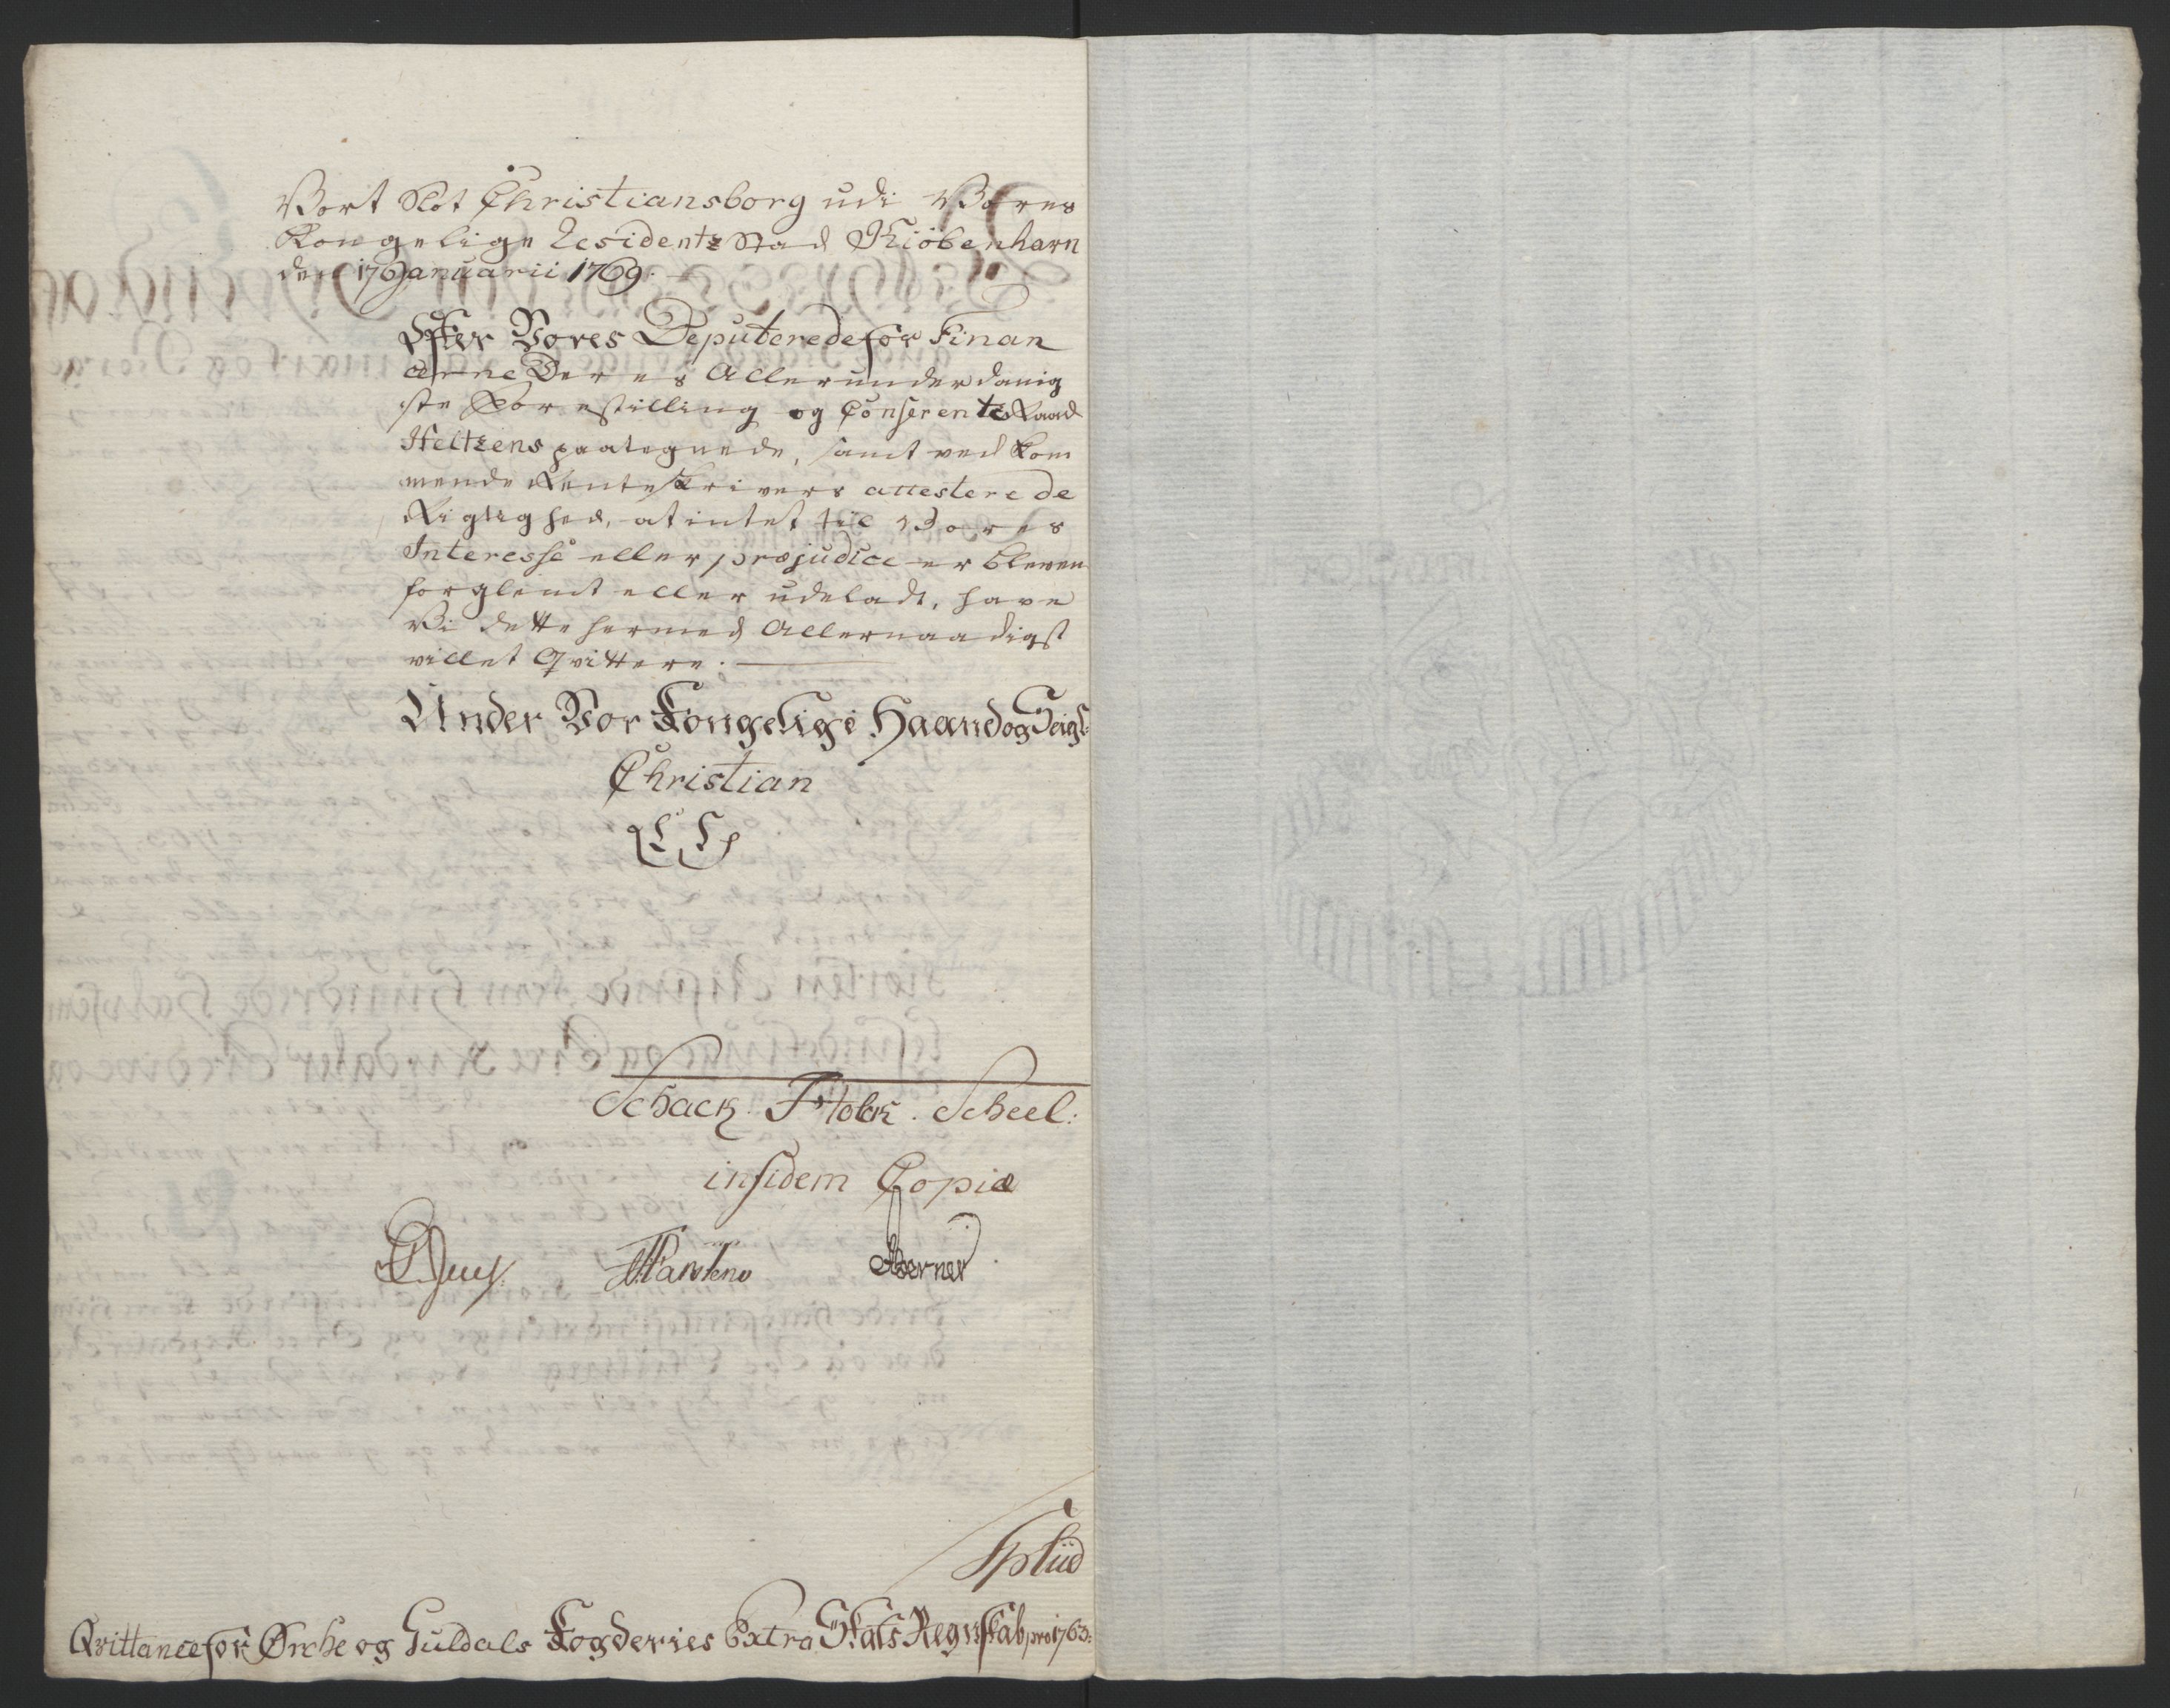 Vort Slot Christiansborg udi Vores
Kongelige Residentz Stad Kiöbenhavn
den 17 Januarii 1769.
Efter Vores Deputerede for Finan
cerne Deres Allerunderdanig
ste Forestilling og Conferentz Raad
Heltzens paategnede, samt ved kom
mende Renteskrivers attesterede
Rigtighed, at intet til Vores
Interesse eller præjudice er bleven
forglemt eller udeladt, have
Vi dette hermed Allernaadigst
villet Qvittere.
Under Vor Kongelige Haand og Seigl:
Christian
Schack. Holck. Scheel:
in fidem Copiæ
Qvittance for Örche og Guldals Fogderies Extra Skats Regnskab pro 1763: